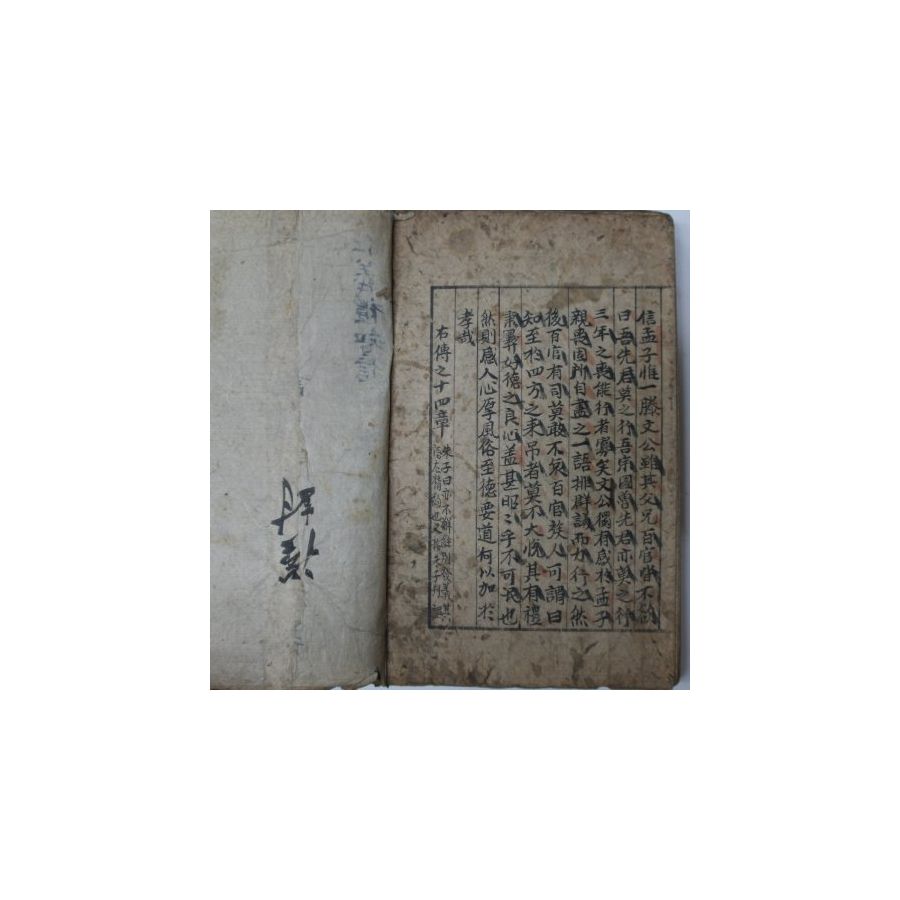 信孟子惟一滕文公雖其父兄百官皆不欲
曰吾先君莫之行吾宗國魯先君亦莫之行
三年之喪能行者寡矣文公獨有感於孟子
親喪固所自盡之一語排群議而力行之然
後百官有司莫敢不哀百官族人可謂曰
知至於四方之來吊者莫不大悅其有禮
秉彛好德之良心盖甚昭〻乎不可泯也
然則感人心厚風俗至德要道何以加於
孝哉
右傳之十四章 朱子曰亦不解經別發義其
禮知信